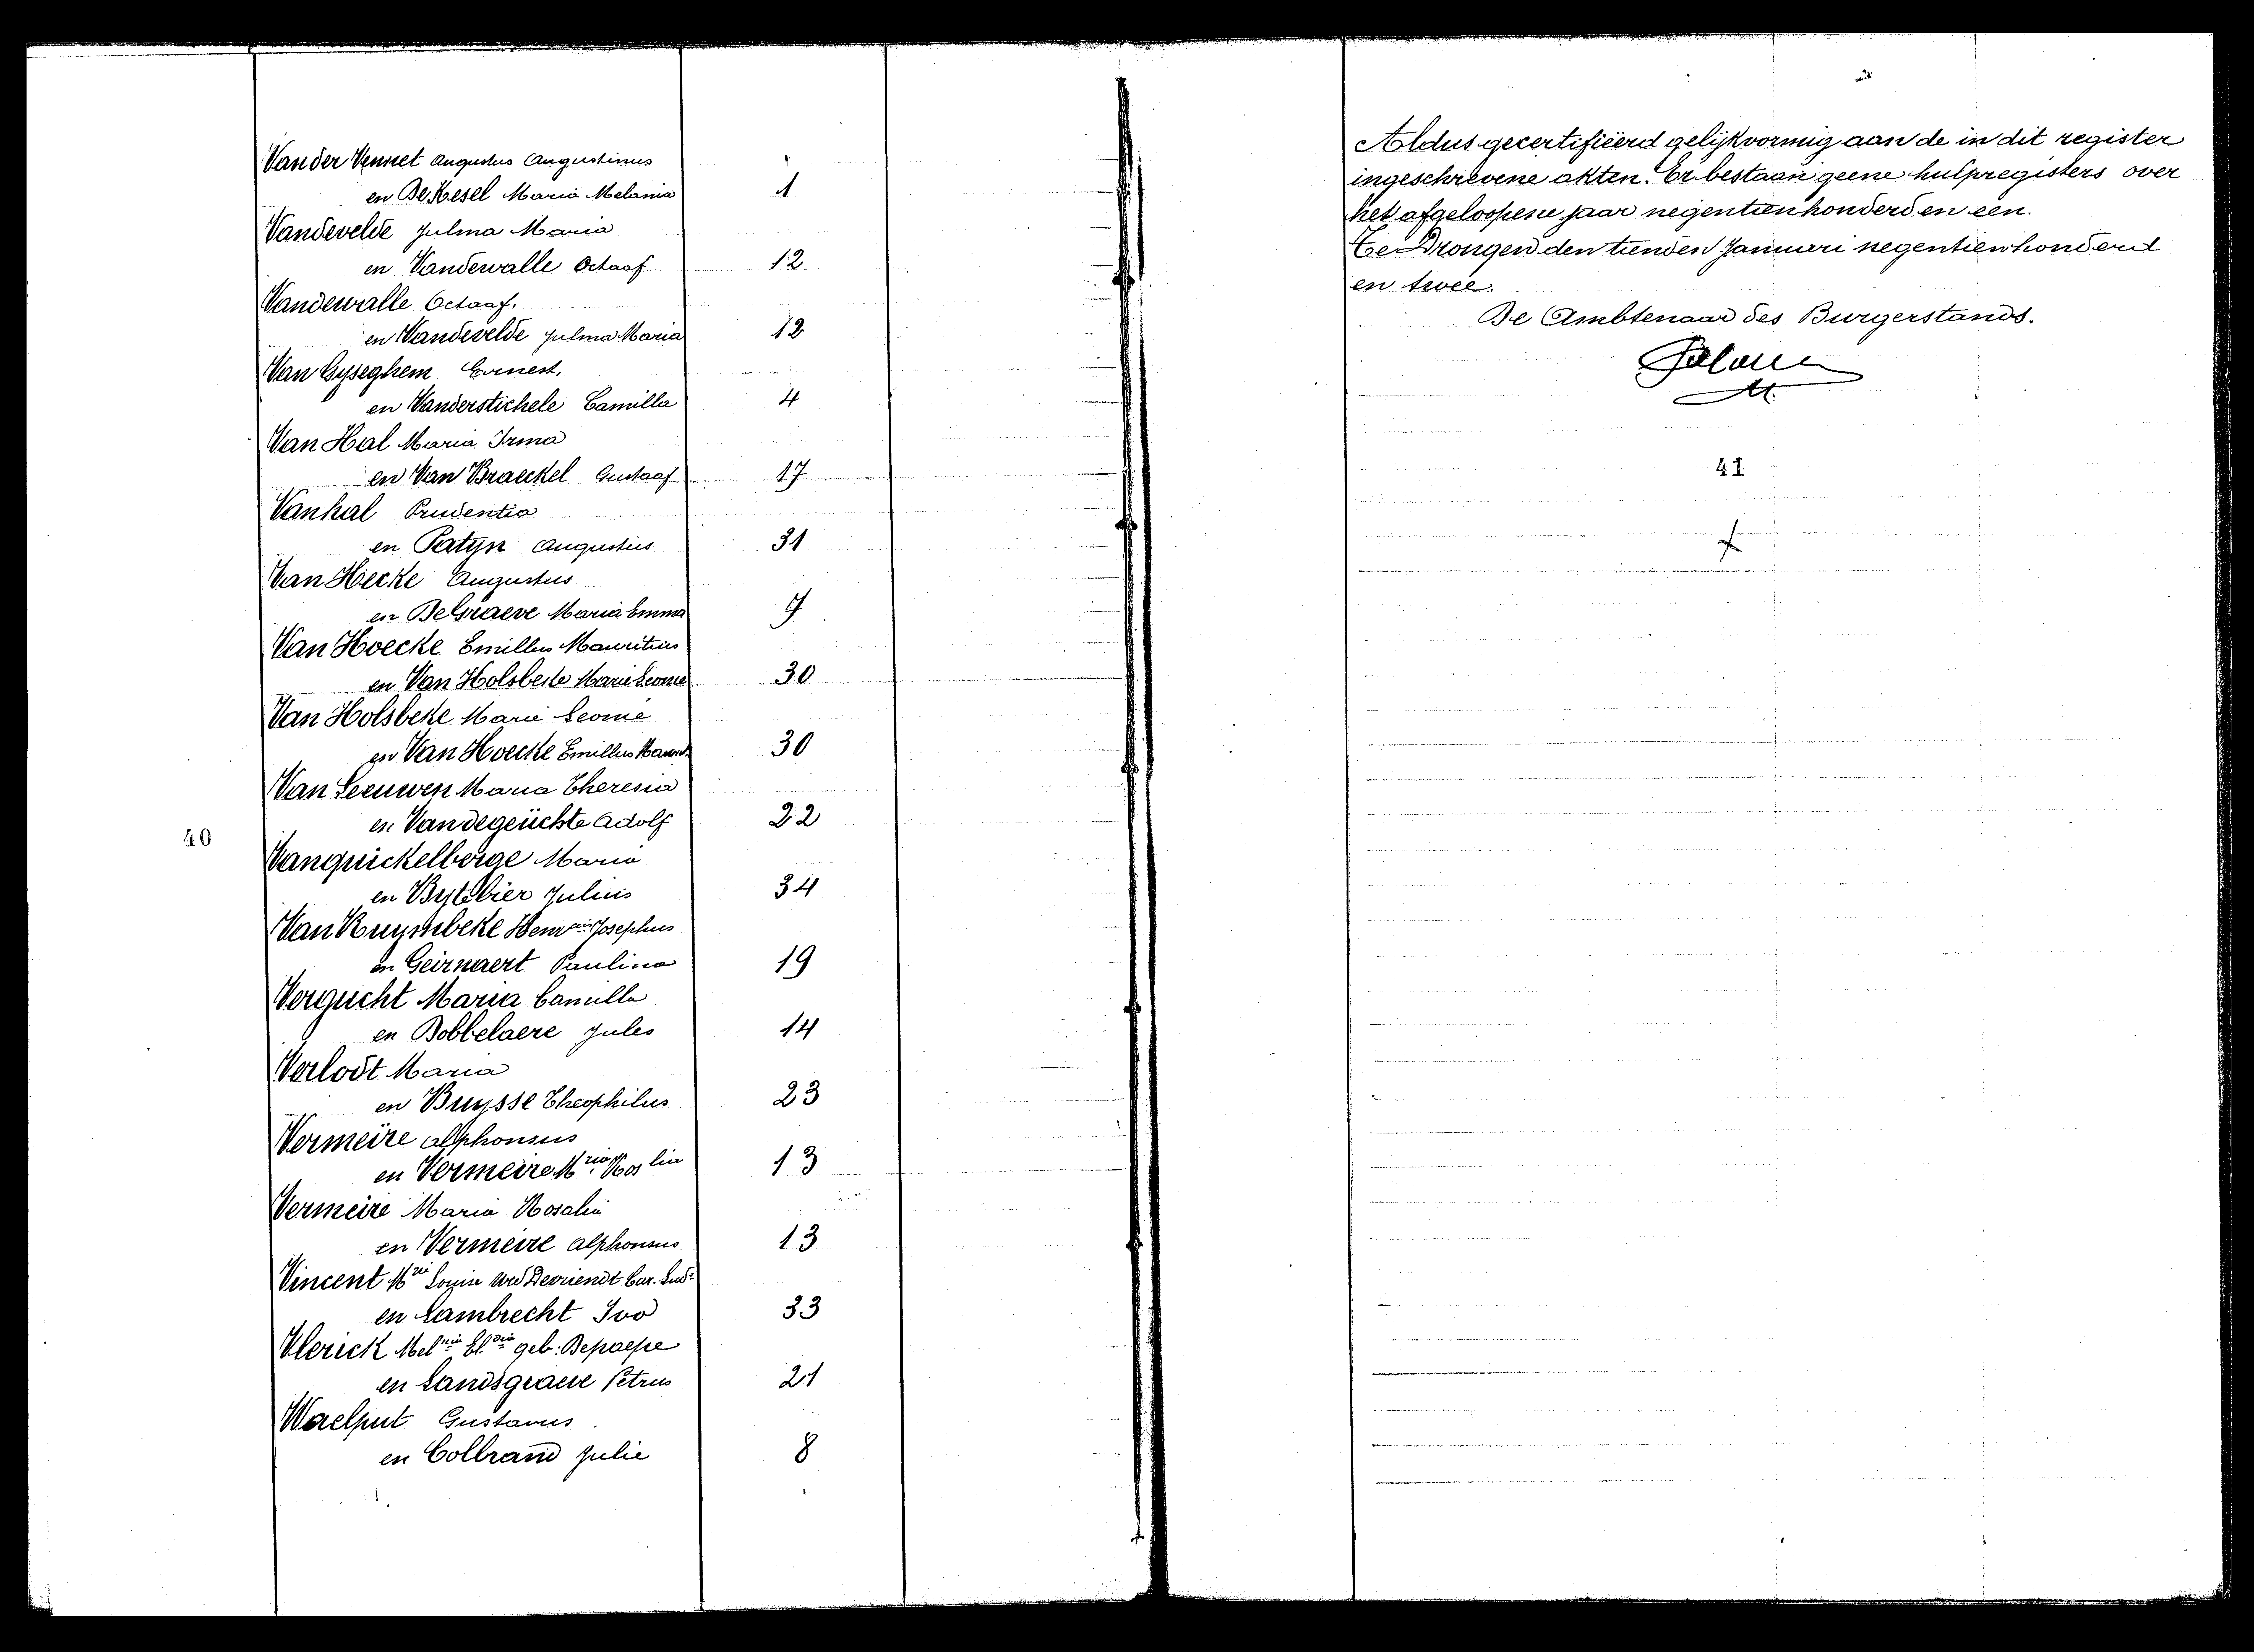 Van der Vennet Augustus Augustinus
en De Kesel Maria Melania 1
Vandevelde Julma Maria
en Vandewalle Octaaf 12
Vandewalle Octaaf.
en Vandevelde Julma Maria 12
Van Gyseghem Ernest.
en Vanderstichele Camilla 4
Van Hal Maria Irma
en Van Braeckel Gustaaf 17
Vanhal Prudentia
en Patyn Augustus 31
Van Hecke Augustus
en De Graeve Maria Emma 9
Van Hoecke Emillus Mauritius
en Van Holsbeke Marie Leonie 30
Van Holsbeke Marie Leonie
en Van Hoecke Emillus 30
Van Leeuwen Maria Theresia
en Vandegeuchte Adolf 22
40
Vanquickelberge Maria
en Bytebier Julius 34
Van Ruymbeke Josephus
en Geirnaert Paulina 19
Vergucht Maria Camilla
en Dobbelaere Jules 14
Verlodt Maria
en Buysse Theophilus 23
Vermeire Alphonsus
en Vermeire Mria Roslia 13
Vermeire Maria Rosalia
en Vermeire Alphonsus 13
Vincent Mrie Louise Wed Devriendt Car. Lud.
en Lambrecht Ivo 33
Vlerick Melnia geb. Depaepe
en Landsgraeve Petrus 21
Waelput Gustavus
en Colbrand Julie 8
Aldus gecertifiëerd gelijkvormig aan de in dit register
ingeschrevene akten. Er bestaan geene hulpregisters over
het afgeloopene jaar negentienhonderd en een.
Te Drongen den tienden Januari negentienhonderd
en twee.
De Ambtenaar des Burgerstands.
41